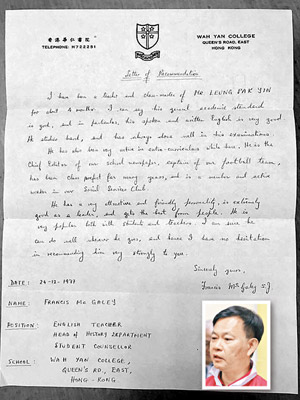 香港華仁書院
TELEPHONE: H722251
WAH YAN COLLEGE
QUEEN'S ROAD, EAST
HONG KONG
Letter of Recommendation
I have been a teacher and class-master of Mr. LEUNG PAK YIN
for about 4 months. I can say his general academic standard
is good, and in particular, his spoken and written English is very good.
He studies hard, and has always done well in his examinations.
He has also been very active in extra-curriculars while here. He is the
Chief Editor of our school newspaper, captain of our football team,
has been class prefect for many years, and is a member and active
worker in our Social Services Club.
He has a very attractive and friendly personality, is extremely
good as a leader, and gets the best from people. He is
very popular with both students and teachers. I am sure he
can do well wherever he goes, and hence I have no hesitation
in recommending him very strongly to you.
Sincerely yours,
Francis McGaley S.J.
DATE: 24-12-1977
NAME: FRANCIS MC GALEY
POSITION: ENGLISH TEACHER
HEAD OF HISTORY DEPARTMENT
STUDENT COUNSELLOR
SCHOOL: WAH YAN COLLEGE,
QUEEN'S RD., EAST,
HONG-KONG